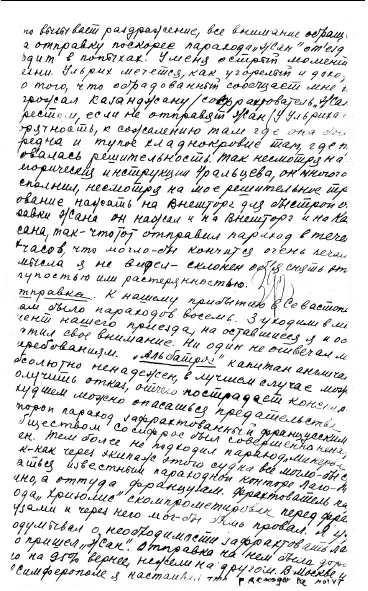 но вызывает раздражение, все внимание обращ
а отправку поскорее парохода „Жан" отъезд
одит в попыхах. У меня острый момент
ени. Ульрих мечется, как угорелый и дохо,
о того, что обрадованный сообщает мне,
грозил Каландусану/софрахтователь „Жан
рестом, если не отправят „Жан/У Ульриха
орятность, к сожалению там где она бы
редна и тупое хладнокровие там, где п
овалась решительность. Так несмотря на
торические инструкции Уральцева, он многого
сполнил, несмотря на мое решительное тр
ование нажать на Внешторг для быстрой о
равки „Жана он нажал и на Внешторг и на Ка
сана, так-что тот отправил пароход в тече
часов, что могло-бы кончится очень печал
мысла я не видел - склонен объяснять это
пупостью или растерянностью.
тправка. К нашему прибытию в Севастоп
ам было пароходов восемь. 3 уходили в м
мент нашего приезда, на оставшиеся я и об
тил свое внимание. Ни один не отвечал м
ребованиям. „Альбатрос" капитан англича
бсолютно ненадежен, в лучшем случае могл
олучить отказ, отчего пострадает конспир
худшем можно опасаться предательства
торой пароход зафрахтованный французским
бществом Сосифрос был совершенно нена
ен. Тем более не подходил пароход „Мингрел
к-как через экипаж этого судна все могло бы с
аться известным пароходной конторе Лаго-
ино, а оттуда французам. Фрахтователь па
ода „Хризолия" скомпрометирован перед фран
узами и через него мог-бы быть провал. Я уж
одумывал о необходимости зафрахтовать Ла
о пришел „Жан". Отправка на нем была доро
го на 95% вернее, нежели на другом. В Москве и
Симферополе я настаивал что расходы на могут